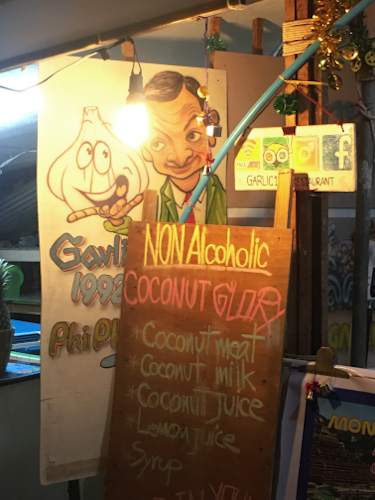 Garli
1992
Phi Ph
FREE
f
GARLIC1 RESTAURANT
NON Alcoholic
COCONUT GLORY
* Coconut meat
* Coconut milk
* Coconut juice
* Lemon juice
* Syrup
MON